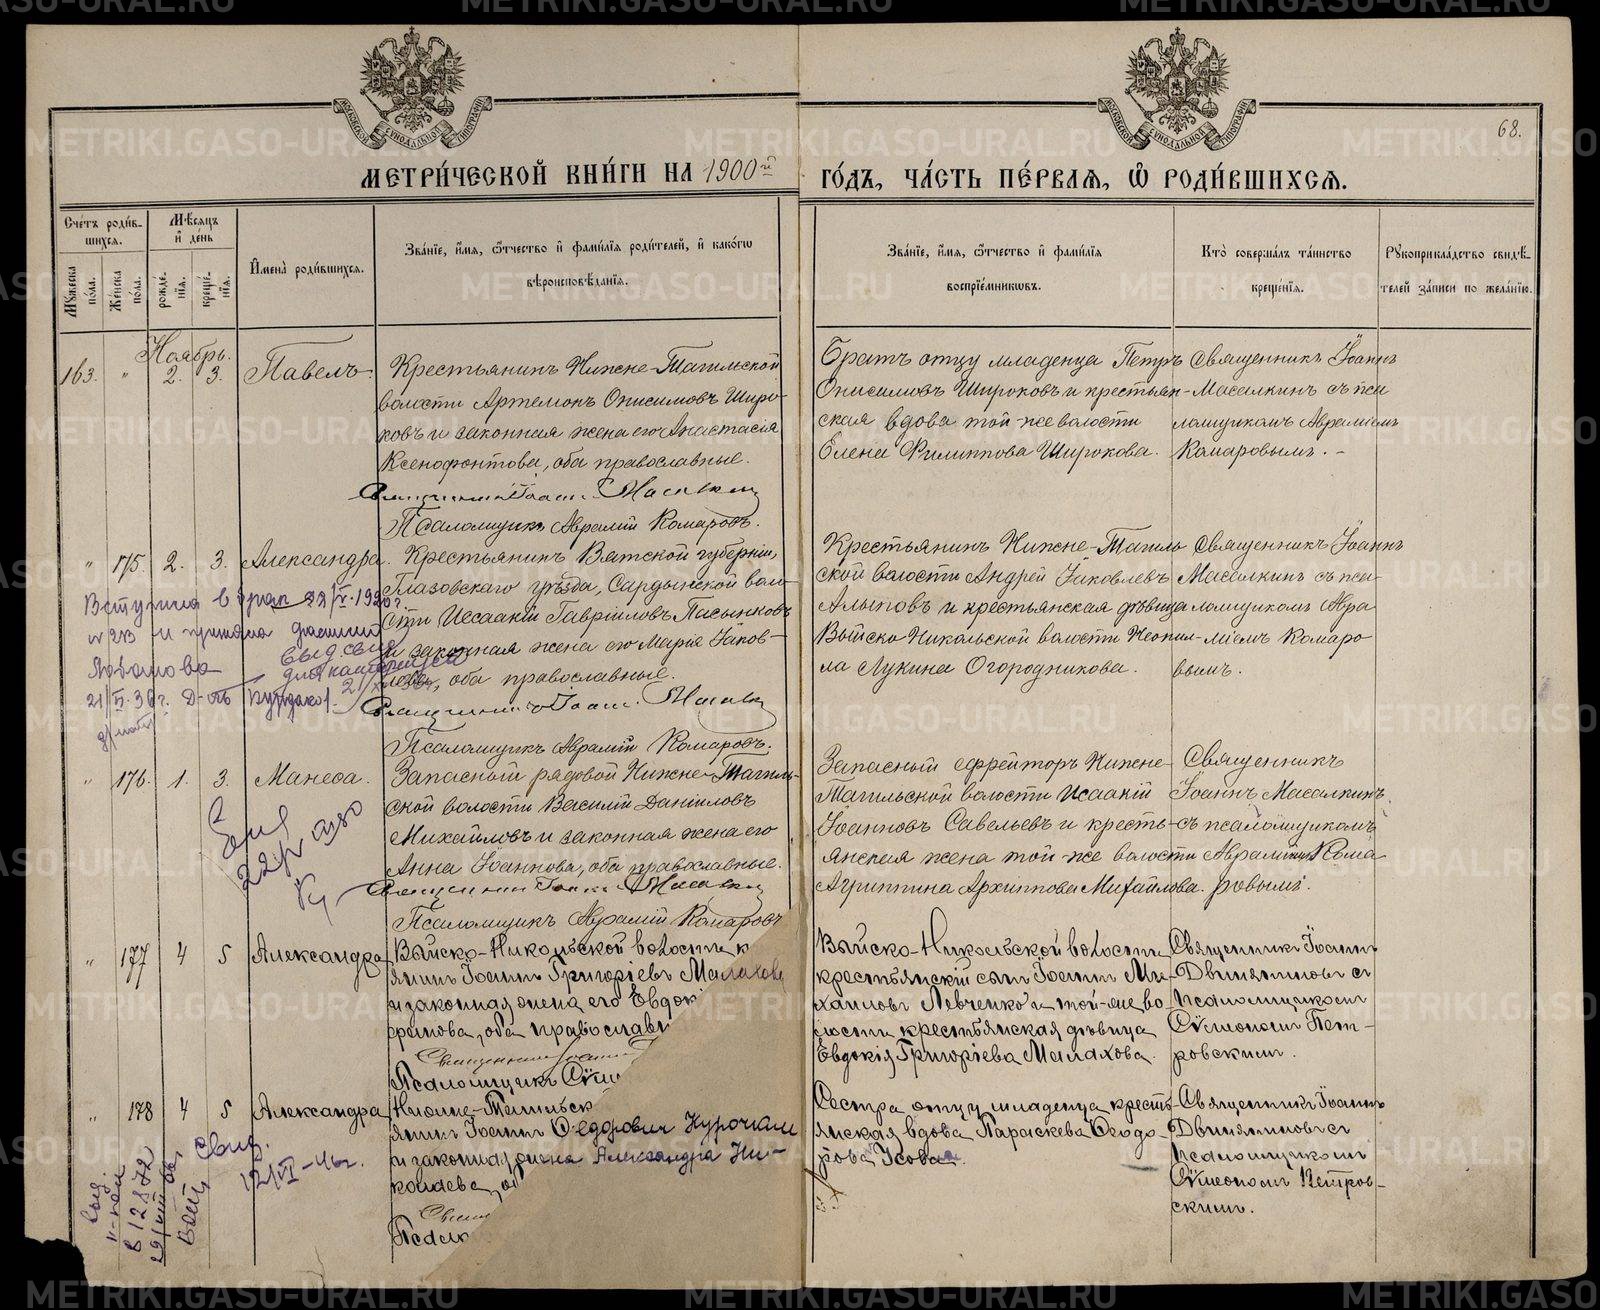 МЕТРИ́ЧЕСКОЙ КНИ́ГИ НА 1900й ГО́ДЪ, ЧА́СТЬ ПЕ́РВАЯ, Ѡ РОДИ́ВШИХСЯ.
68.
Сче́тъ роди́в-
шихся.
Мѣ́сяцъ
и҆ де́нь
Мꙋ́жеска
по́ла.
Же́нска
по́ла.
рожде́-
нїя.
креще́-
нїя.
И҆мена̀ роди́вшихся.
Зва́нїе, и҆́мя, ѻ҆́тчество и҆ фами́лїя роди́телей, и҆ како́гѡ
вѣроисповѣ́данїя.
Зва́нїе, и҆́мя, ѻ҆́тчество и҆ фами́лїя
воспрїе́мникѡвъ.
Кто̀ соверша́лъ та́инство
креще́нїя.
Рꙋкоприкла́дство свидѣ́-
телей за́писи по жела́нїю.
Ноябрь.
163. " 2. 3. Павелъ.
Крестьянинъ Нижне-Тагильской
волости Артемонъ Онисимовъ Широ-
ковъ и законная жена его Анастасія
Ксенофонтова, оба православные.
Псаломщикъ Аврамій Комаровъ.
Братъ отцу младенца Петръ
Онисимовъ Широковъ и крестьян-
ская вдова той-же волости
Елена Филиппова Широкова.
Священникъ Іоаннъ
Масалкинъ съ пса
ломщикомъ Авраміемъ
Комаровымъ.
" 175. 2. 3. Александра.
Крестьянинъ Вятской губерніи,
Глазовскаго уѣзда, Сардынской воло-
сти Исаакій Гавріиловъ Пасынковъ
и законная жена его Марія Іаков-
лева, оба православные.
Псаломщикъ Аврамій Комаровъ.
Крестьянинъ Нижне-Тагиль
ской волости Андрей Іаковлевъ
Алыповъ и крестьянская дѣвица
Выйско-Никольской волости Неони-
ла Лукина Огородникова.
Священникъ Іоаннъ
Масалкинъ съ пса-
ломщикомъ Авра
міемъ Комаро
вымъ.
Вступила в брак
" 176. 1. 3. Манефа.
Запасный рядовой Нижне-Тагиль-
ской волости Василій Даніиловъ
Михайловъ и законная жена его
Анна Іоаннова, оба православные.
Псаломщикъ Аврамій Комаровъ
Запасный ефрейторъ Нижне-
Тагильской волости Исаакій
Іоанновъ Савельевъ и кресть-
янская жена той-же волости
Агриппина Архиппова Михайлова.
Священникъ
Іоаннъ Масалкинъ
съ псаломщикомъ
Авраміемъ Кома
ровымъ.
" 177 4 5 Александра
Выйско-Никольской волости к
янинъ Іоаннъ Григоріевъ Малахов
и законная жена его Евдок
фанова, оба православн
Псаломщикъ Сѵм
Выйско-Никольской волости
крестьянскій сынъ Іоаннъ Ми-
хаиловъ Левченко и той-же во-
лости крестьянская дѣвица
Евдокія Григоріева Малахова.
Священникъ Іоаннъ
Двиняниновъ съ
псаломщикомъ
Сѵмеономъ Пет-
ровскимъ.
" 178 4 5 Александра
Нижне-Тагильск
янинъ Іоаннъ Федорович Курочкин
и законная жена Александра Ни-
колаева, о
Псалом
Сестра отцу младенца кресть-
янская вдова Параскева Ѳеодо-
рова Усова.
Священникъ Іоаннъ
Двиняниновъ съ
псаломщикомъ
Сѵмеономъ Петров-
скимъ.
свид.
12/VI-46г.